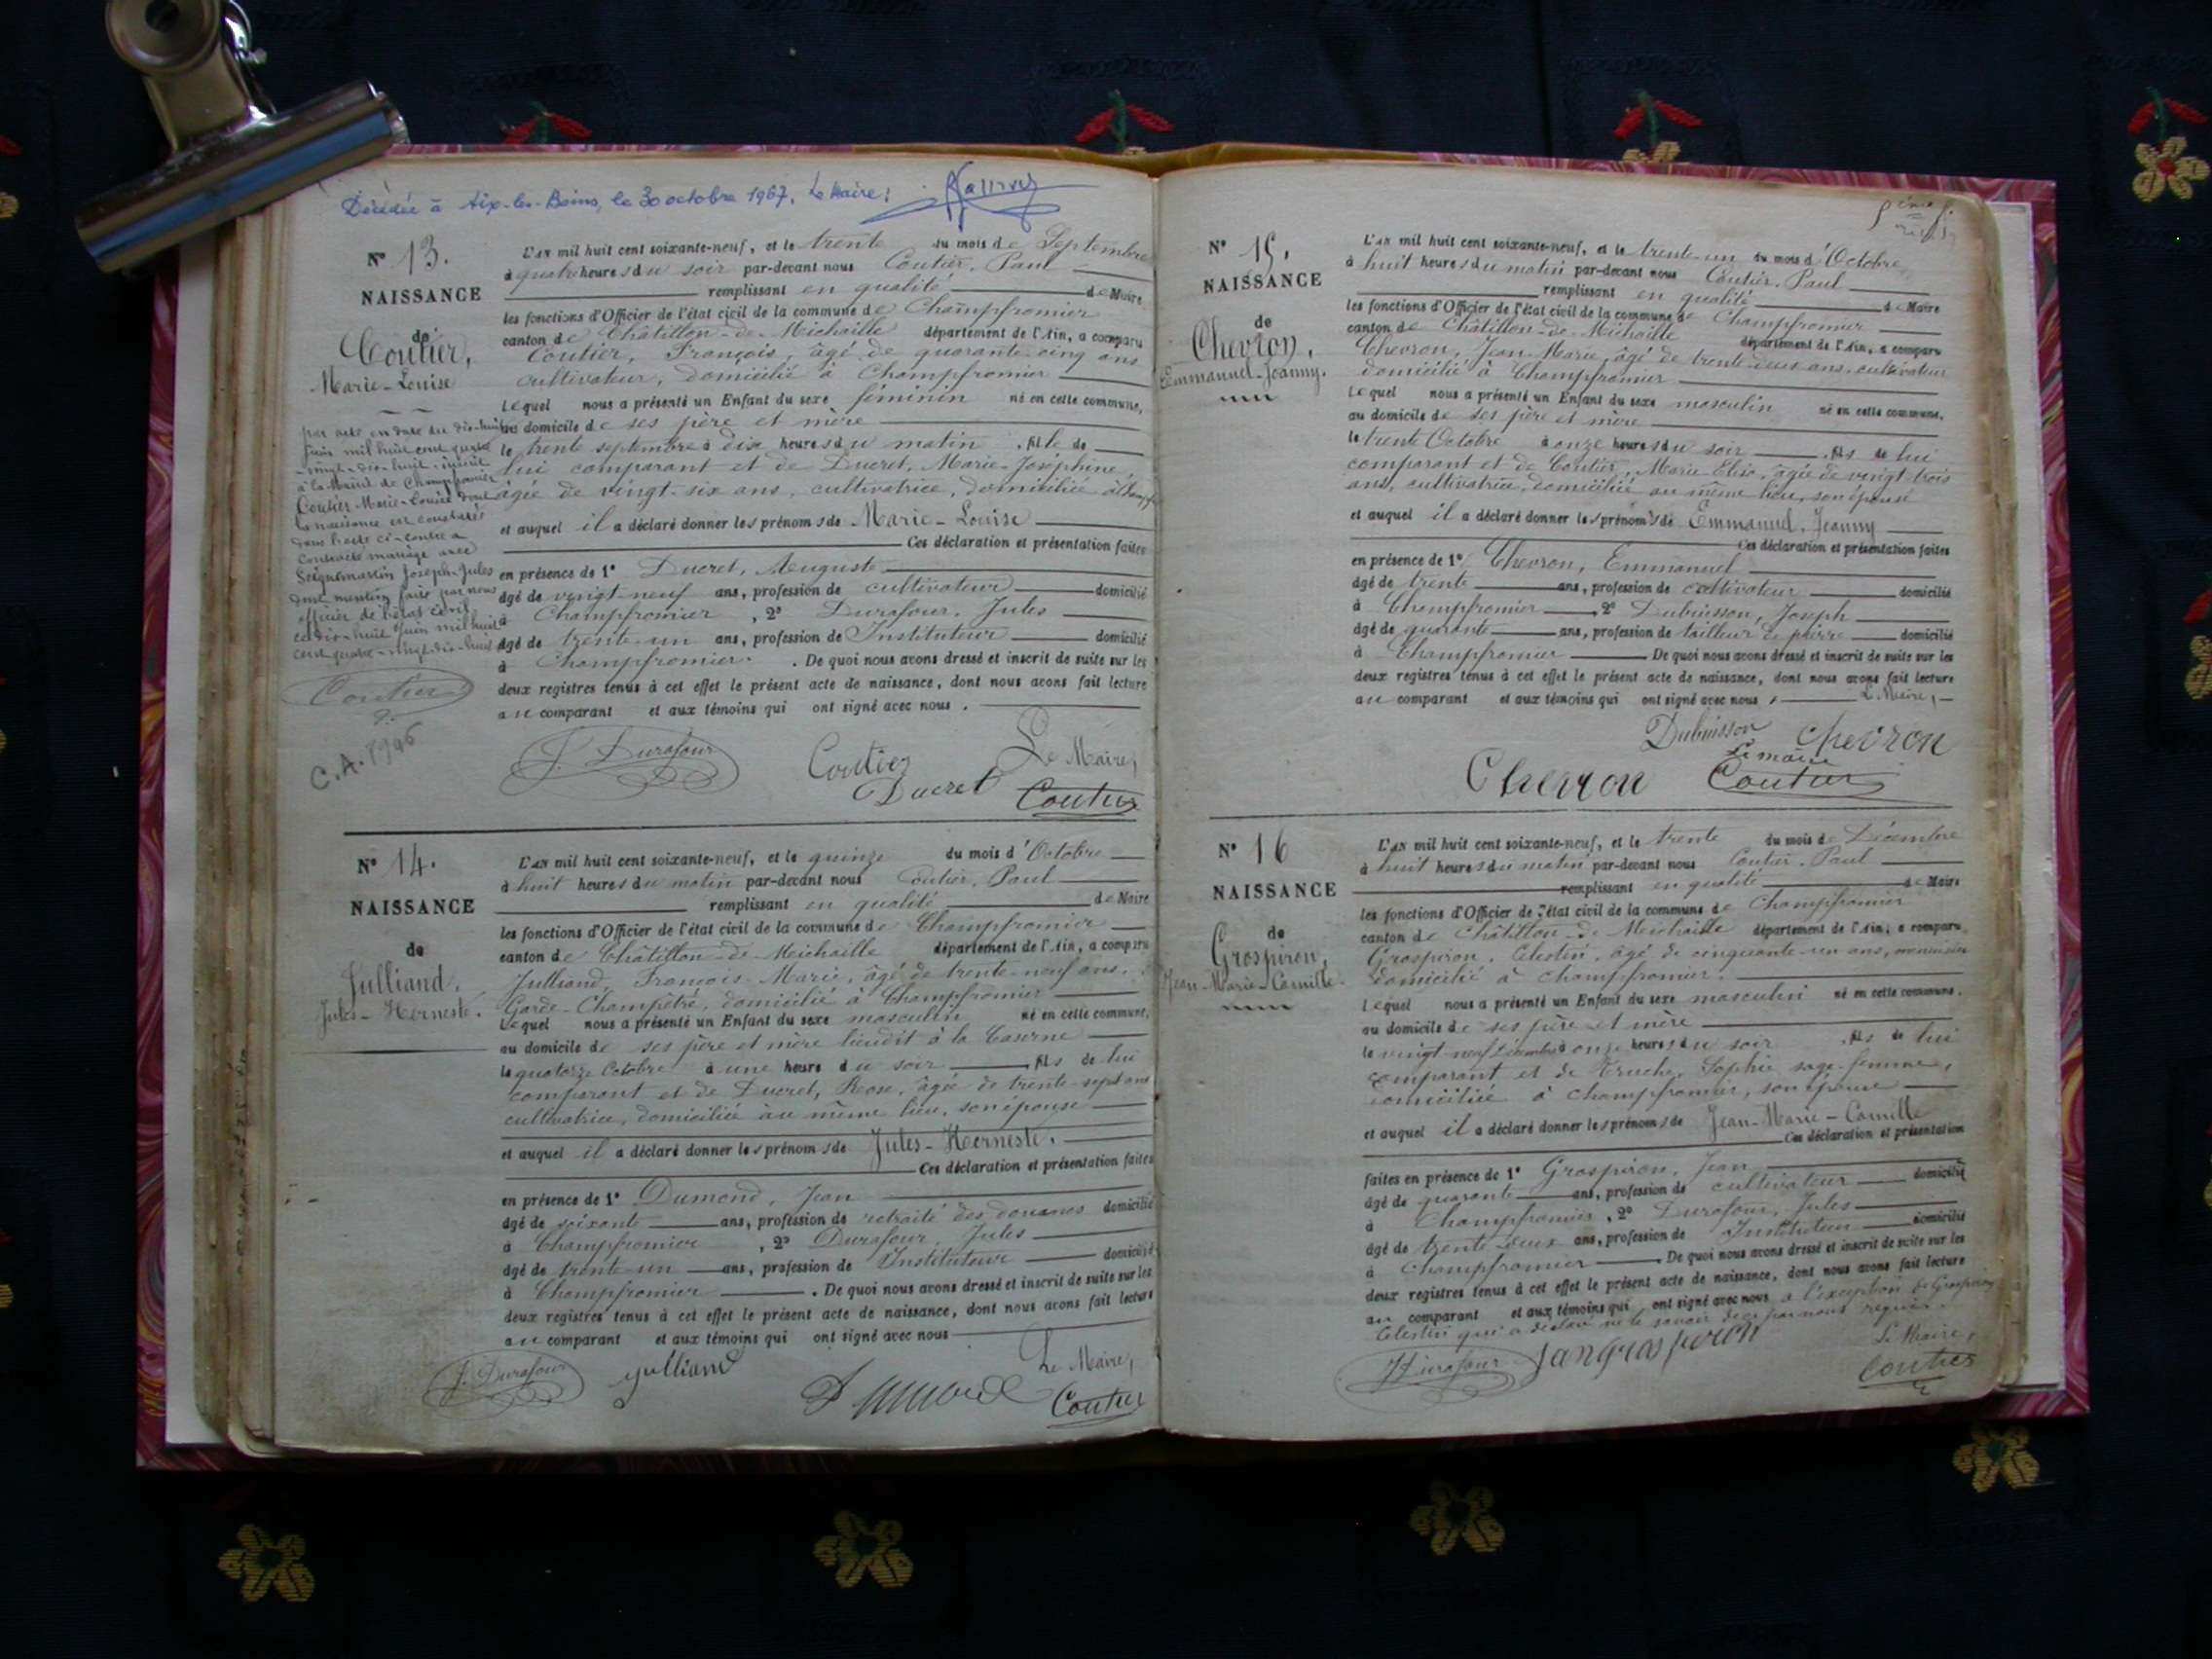 Décédée à Aix-les-Bains, le 30 octobre 1967. Le Maire:
N° 13.
NAISSANCE
de
Coutier,
Marie-Louise
par acte en date du dix-huit
juin mil huit cent quatre
-vingt-dix-huit
à la Mairie de Champfromier
Coutier Marie-Louise dont
la naissance est constatée
dans l'acte ci-contre a
contracté mariage avec
Seignemartin Joseph-Jules
dont mention faite par nous
officier de l'état civil
ce dix-huit Juin mil huit
cent quatre-vingt-dix-huit
Coutier
L'an mil huit cent soixante-neuf, et le trente du mois de Septembre
à quatre heures du soir par-devant nous Coutier, Paul
remplissant en qualité de Maire
les fonctions d'Officier de l'état civil de la commune de Champfromier
canton de Châtillon-de-Michaille département de l'Ain, a comparu
Coutier, François, âgé de quarante-cinq ans
cultivateur, domicilié à Champfromier
Lequel nous a présenté un Enfant du sexe féminin né en cette commune,
au domicile de ses père et mère
le trente septembre à dix heures du matin, fille de
lui comparant et de Ducret, Marie-Joséphine,
âgée de vingt-six ans, cultivatrice, domiciliée à Champf
et auquel il a déclaré donner les prénoms de Marie-Louise
Ces déclaration et présentation faites
en présence de 1° Ducret, Auguste
âgé de vingt-neuf ans, profession de cultivateur domicilié
à Champfromier, 2° Durafour, Jules
âgé de trente-un ans, profession de Instituteur domicilié
à Champfromier. De quoi nous avons dressé et inscrit de suite sur les
deux registres tenus à cet effet le présent acte de naissance, dont nous avons fait lecture
au comparant et aux témoins qui ont signé avec nous.
J. Durafour Coutier Le Maire,
Ducret Coutier
N° 14.
NAISSANCE
de
Julliand,
Jules-Herneste.
L'an mil huit cent soixante-neuf, et le quinze du mois d'Octobre
à huit heures du matin par-devant nous Coutier, Paul
remplissant en qualité de Maire
les fonctions d'Officier de l'état civil de la commune de Champfromier
canton de Châtillon-de-Michaille département de l'Ain, a comparu
Julliand, François-Marie, âgé de trente-neuf ans,
Garde-Champêtre, domicilié à Champfromier
Lequel nous a présenté un Enfant du sexe masculin né en cette commune,
au domicile de ses père et mère lieudit à la Caserne
le quatorze Octobre à une heure du soir, fils de lui
comparant et de Ducret, Rose, âgée de trente-sept ans
cultivatrice, domiciliée au même lieu, son épouse
et auquel il a déclaré donner les prénoms de Jules-Herneste.
Ces déclaration et présentation faites
en présence de 1° Dumond, Jean
âgé de soixante ans, profession de retraité des douanes domicilié
à Champfromier, 2° Durafour, Jules
âgé de trente-un ans, profession de Instituteur domicilié
à Champfromier. De quoi nous avons dressé et inscrit de suite sur les
deux registres tenus à cet effet le présent acte de naissance, dont nous avons fait lecture
au comparant et aux témoins qui ont signé avec nous
J. Durafour Julliand Le Maire,
Dumond Coutier
N° 15.
NAISSANCE
de
Chevron,
Emmanuel-Jeanny.
L'an mil huit cent soixante-neuf, et le trente-un du mois d'Octobre
à huit heures du matin par-devant nous Coutier, Paul
remplissant en qualité de Maire
les fonctions d'Officier de l'état civil de la commune de Champfromier
canton de Châtillon-de-Michaille département de l'Ain, a comparu
Chevron, Jean-Marie, âgé de trente-deux ans, cultivateur
domicilié à Champfromier
Lequel nous a présenté un Enfant du sexe masculin né en cette commune,
au domicile de ses père et mère
le trente Octobre à onze heures du soir, fils de lui
comparant et de Coutier, Marie Elisa, âgée de vingt-trois
ans, cultivatrice, domiciliée au même lieu, son épouse
et auquel il a déclaré donner les prénoms de Emmanuel-Jeanny
Ces déclaration et présentation faites
en présence de 1° Chevron, Emmanuel
âgé de trente ans, profession de cultivateur domicilié
à Champfromier, 2° Dubuisson, Joseph
âgé de quarante ans, profession de tailleur de pierre domicilié
à Champfromier De quoi nous avons dressé et inscrit de suite sur les
deux registres tenus à cet effet le présent acte de naissance, dont nous avons fait lecture
au comparant et aux témoins qui ont signé avec nous, Le Maire,
Dubuisson Chevron
Le maire
Chevron Coutier
N° 16
NAISSANCE
de
Grospiron,
Jean-Marie-Camille.
L'an mil huit cent soixante-neuf, et le trente du mois de Décembre
à huit heures du matin par-devant nous Coutier, Paul
remplissant en qualité de Maire
les fonctions d'Officier de l'état civil de la commune de Champfromier
canton de Châtillon-de-Michaille département de l'Ain, a comparu
Grospiron, Célestin, âgé de cinquante-un ans, menuisier
domicilié à Champfromier.
Lequel nous a présenté un Enfant du sexe masculin né en cette commune,
au domicile de ses père et mère
le vingt-neuf décembre à onze heures du soir, fils de lui
comparant et de Truche, Sophie, sage-femme,
domiciliée à Champfromier, son épouse
et auquel il a déclaré donner les prénoms de Jean-Marie-Camille
Ces déclaration et présentation
faites en présence de 1° Grospiron, Jean
âgé de quarante ans, profession de cultivateur domicilié
à Champfromier, 2° Durafour, Jules
âgé de trente-deux ans, profession de Instituteur domicilié
à Champfromier De quoi nous avons dressé et inscrit de suite sur les
deux registres tenus à cet effet le présent acte de naissance, dont nous avons fait lecture
au comparant et aux témoins qui ont signé avec nous à l'exception de Grospiron
Célestin qui a déclaré ne le savoir de ce par nous requis.
J. Durafour Jangrospiron Le Maire,
Coutier